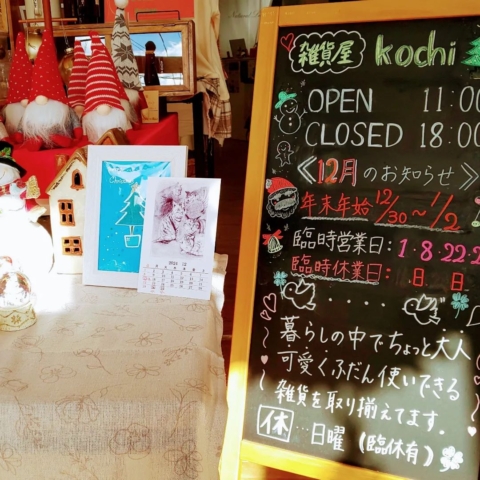 雑貨屋 kochi
OPEN 11:00
CLOSED 18:00
≪12月のお知らせ≫
年末年始 12/30~1/2
臨時営業日:1.8.22.2
臨時休業日: .日. .日.
暮らしの中でちょっと大人
可愛くふだん使いできる
雑貨を取り揃えてます.
休…日曜(臨休有)